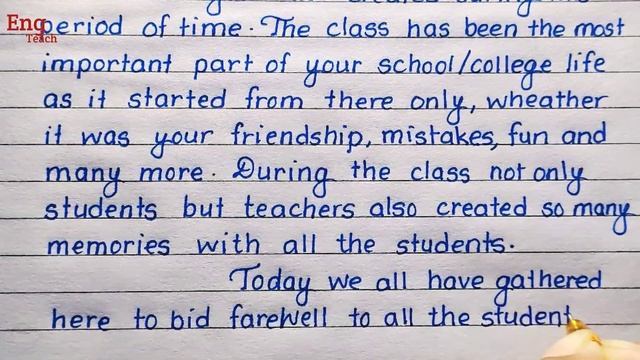 Enq
Teach
period of time. The class has been the most
important part of your school/college life
as it started from there only, wheather
it was your friendship, mistakes, fun and
many more. During the class not only
students but teachers also created so many
memories with all the students.
Today we all have gathered
here to bid farewell to all the student